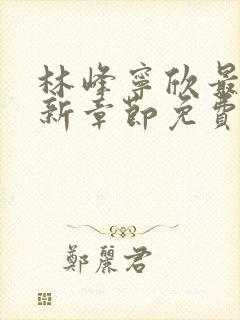 林峰寧欣最
新章節免費
鄭麗君